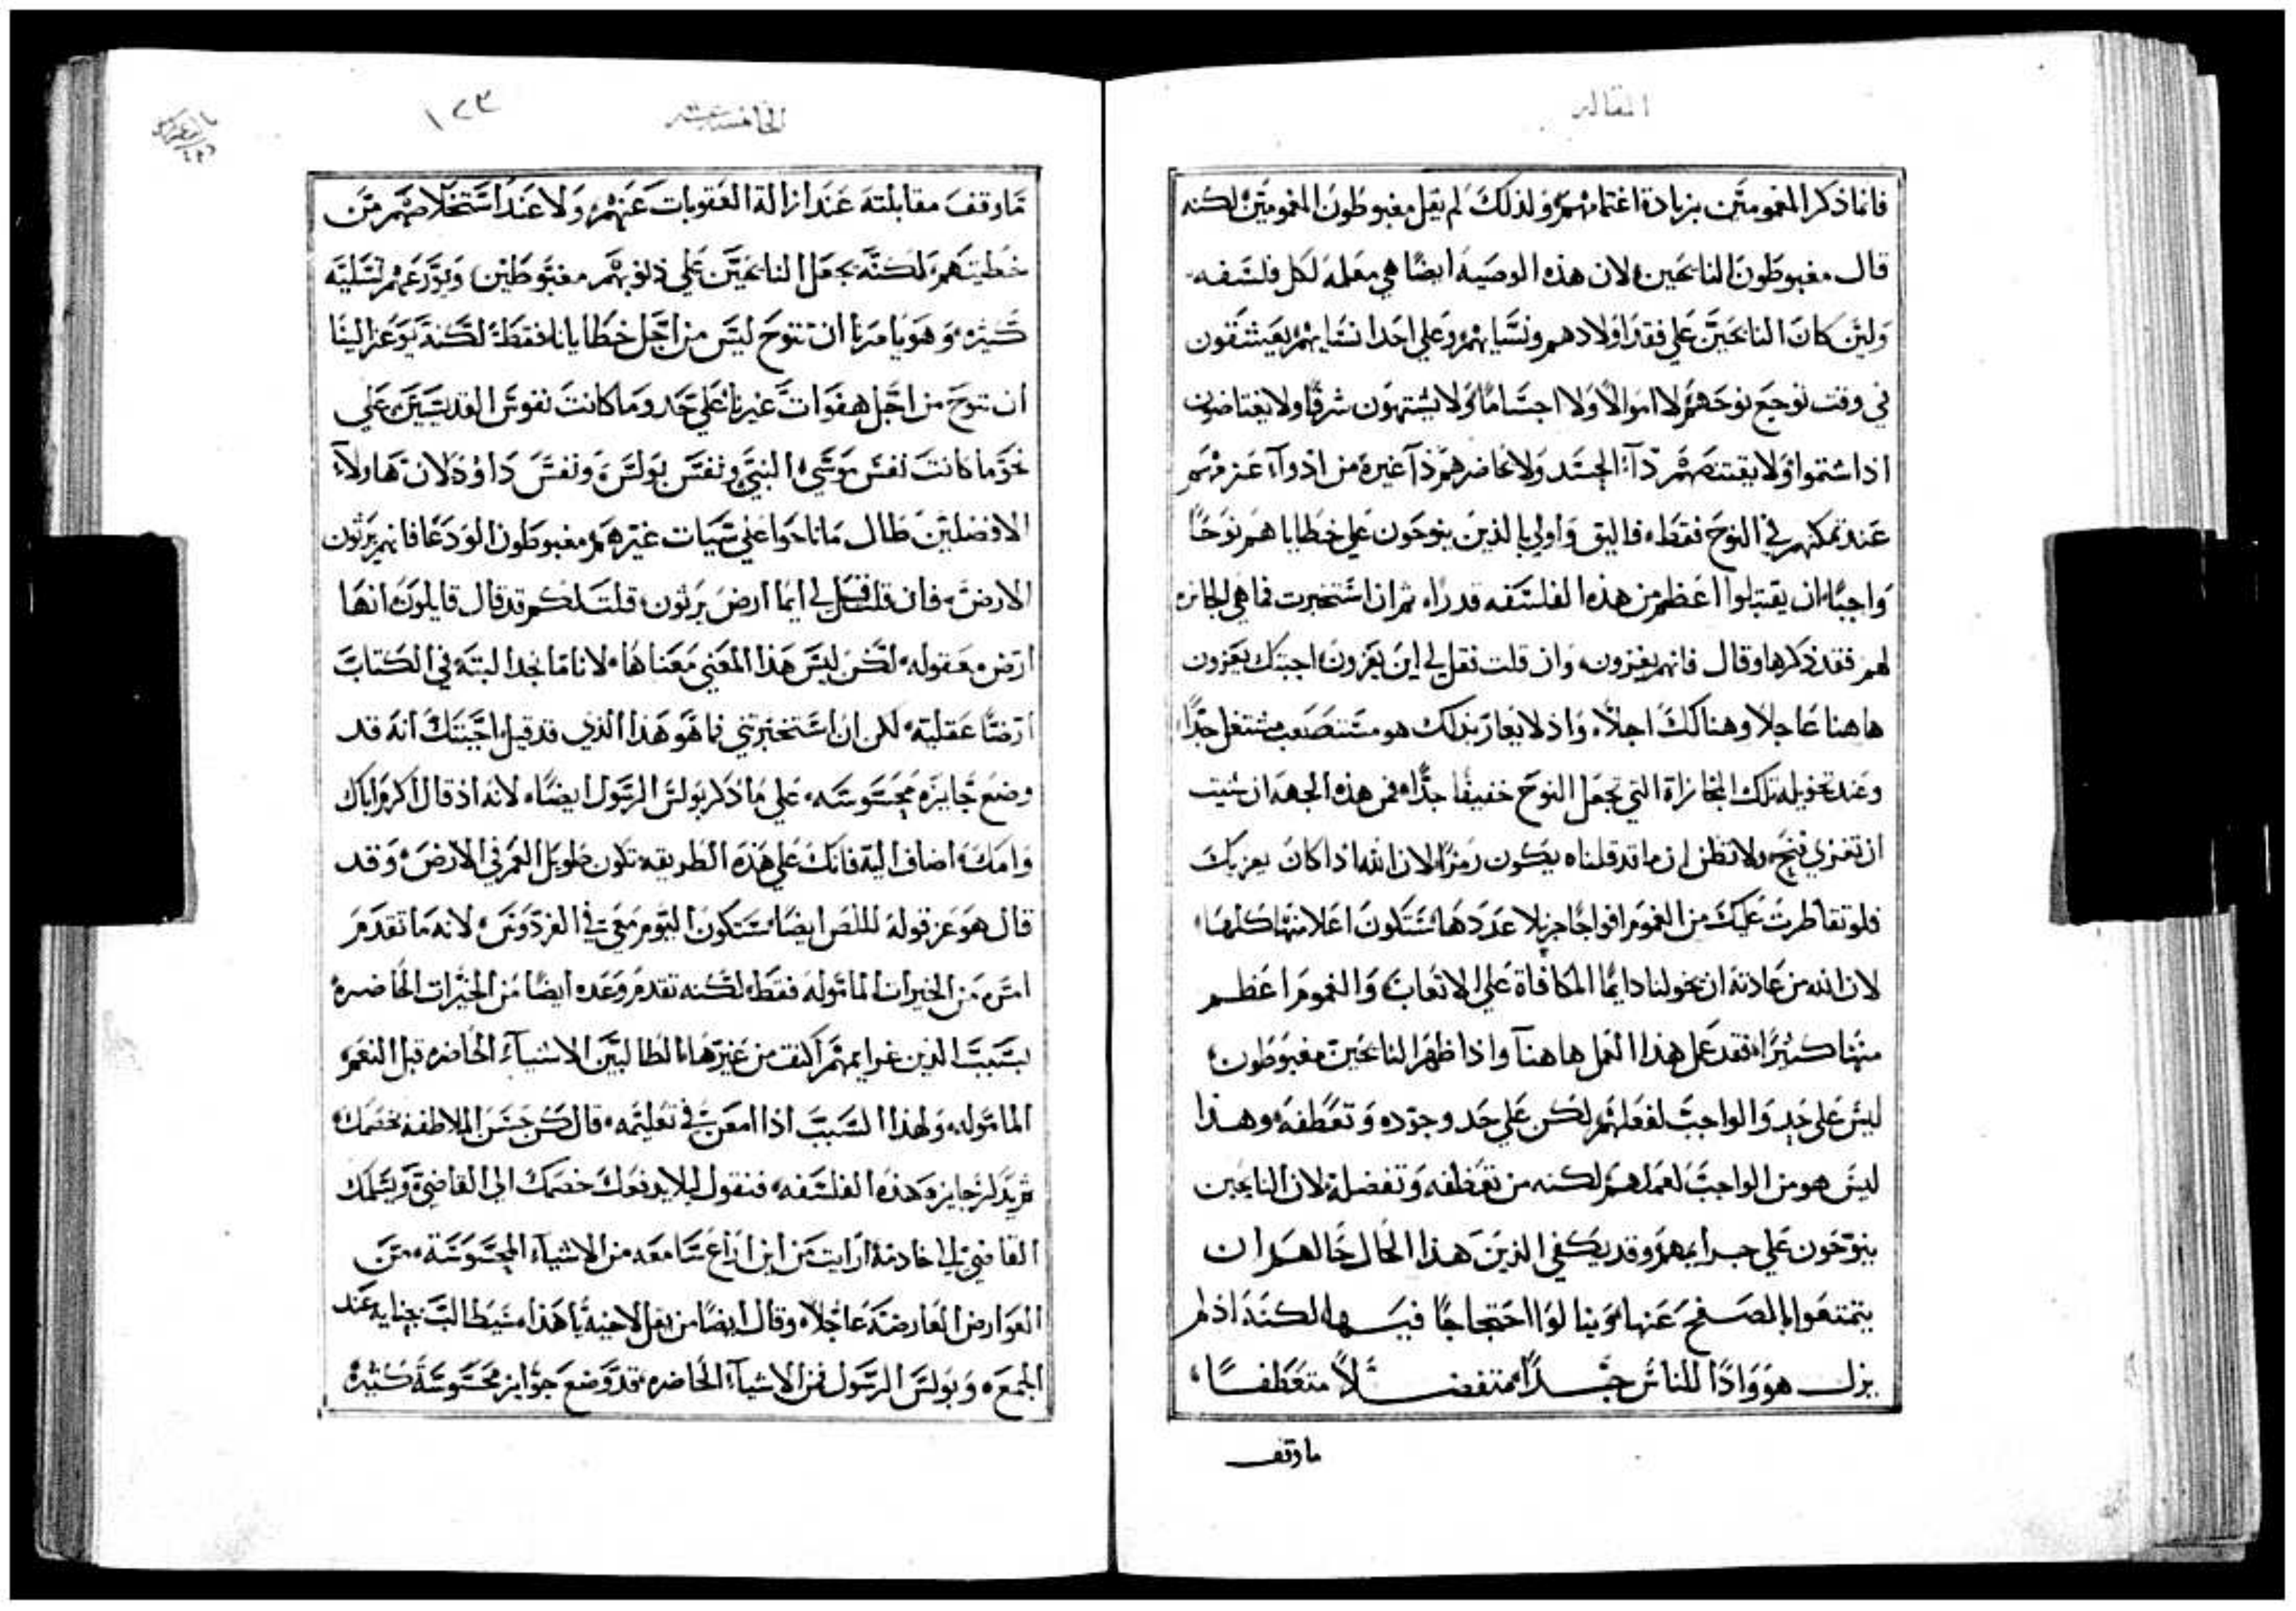 المقاله
فانما ذكر المغمومين بزيادة اغتمامهم ولذلك لم يقل مغبوطون المغمومين لكنه
قال مغبوطون النايحين لان هذه الوصيه ايضا هي معلمه لكل فلسفه
ولين كان النايحين علي فقد اولادهم ونسايهم وعلي احد انسايهم يعيشون
في وقت توجع نوحهم لا اموالا ولا اجساما ولا يشتهون شرفا ولا يغتاضون
اذا اشتموا ولا يقتنصهم دآ الجسد ولا يحاضرهم دآ غيره من ادوآ
عند تمكنهم في النوح فقط فاليق واولي بالذين ينوحون علي خطاياهم نوحا
واجبا ان يقتبلوا اعظم من هذه الفلسفه قدرا ثم ان استخبرت فما هي الجايزه
لهم فقد ذكرها وقال فانهم يعزون وان قلت فقل لي اين يعزون اجبتك يعزون
هاهنا عاجلا وهنالك اجلا واذ لا يعارىذلك هو مستصعب مشتغل جدا
وعند تخويله تلك المجازاة التي تجعل النوح خفيفا جدا فمن هذه الجهه ان شيت
ان تعزي فنح ولا تظن ان ما قد قلناه يكون رمزا لان الله اذا كان يعزيك
فلو تقاطرت عليك من الغموم افواجا جزيلا عددها ستكون اعلا منها كلها
لان الله من عادته ان يخولنا دايما المكافاة علي الاتعاب والغموم اعظم
منها كثيرا فقد عمل هذا العمل هاهنآ واذا ظهر النايحين مغبوطون
ليس علي حد والواجب لفعلهم لكن علي حد وجوده وتعطفه وهذا
ليس هو من الواجب لعملهم لكنه من تعطفه وتفضله لان النايحين
ينوحون علي جرايمهم وقد يكفي الذين هذا الحال حالهم ان
يتمتعوا بالصفح عنها وينالوا احتجاجا فيها لكنه اذ لم
يزل هو وادا للناس جدا متفضلا متعطفا
ماوقف
الخامسه عشر
١٢٣
ماوقف مقابلته عند ازالة العقوبات عنهم ولا عند استخلاصهم من
خطيتهم لكنه يجعل النايحين علي ذنوبهم مغبوطين ويوزعهم تسليه
كثيره وهو يامرنا ان ننوح ليس من اجل خطايانا فقط لكنه يوعز الينا
ان ننوح من اجل هفوات غيرنا علي حد وما كانت نفوس القديسين علي
نحو ما كانت نفس موسي النبي ونفس بولس ونفس داوود لان هاولاء
الافضلين طال ما ناحوا علي سيات غيرهم مغبوطون الودعا فانهم يرثون
الارض فان قلت فقل لي ايما ارض يرثون قلت لكم قد قال قايلون انها
ارض معقوله لكن ليس هذا المعني معناها لاناما نجد البته في الكتاب
ارضا عقلية لكن ان استخبرتني فما هو هذا الذي قد قيل اجبتك انه قد
وضع جايزه محسوسه علي ما ذكر بولس الرسول ايضا لانه اذ قال اكرم اباك
وامك اضاف اليه فانك علي هذه الطريقه تكون طويل العمر في الارض وقد
قال هو عز قوله للص ايضا ستكون اليوم معي في الفردوس لانه ما تقدم
امن من الخيرات الماموله فقط لكنه تقدم وعده ايضا من الخيرات الحاضره
بسبب الذين غرايمهم اكثف من غيرها الطالبين الاشيآ الحاضره قبل النعم
الماموله ولهذا السبب اذا امعن في تعليمه قال كن حسن الملاطفه لخصمك
ثم يذكر جايزه هذه الفلسفه فنقول ليلا يدفعك خصمك الي القاضي ويسلمك
القاضي لي خادمه ارايت من اين اراعنا معه من الاشيآ المحسوسة من
العوارض العارضه عاجلا وقال ايضا من يقل لاخيه يا هذا سيطالب بجنايه عند
الجمع وبولس الرسول فمن الاشيآ الحاضره قد وضع جوايز محسوسة كثيره